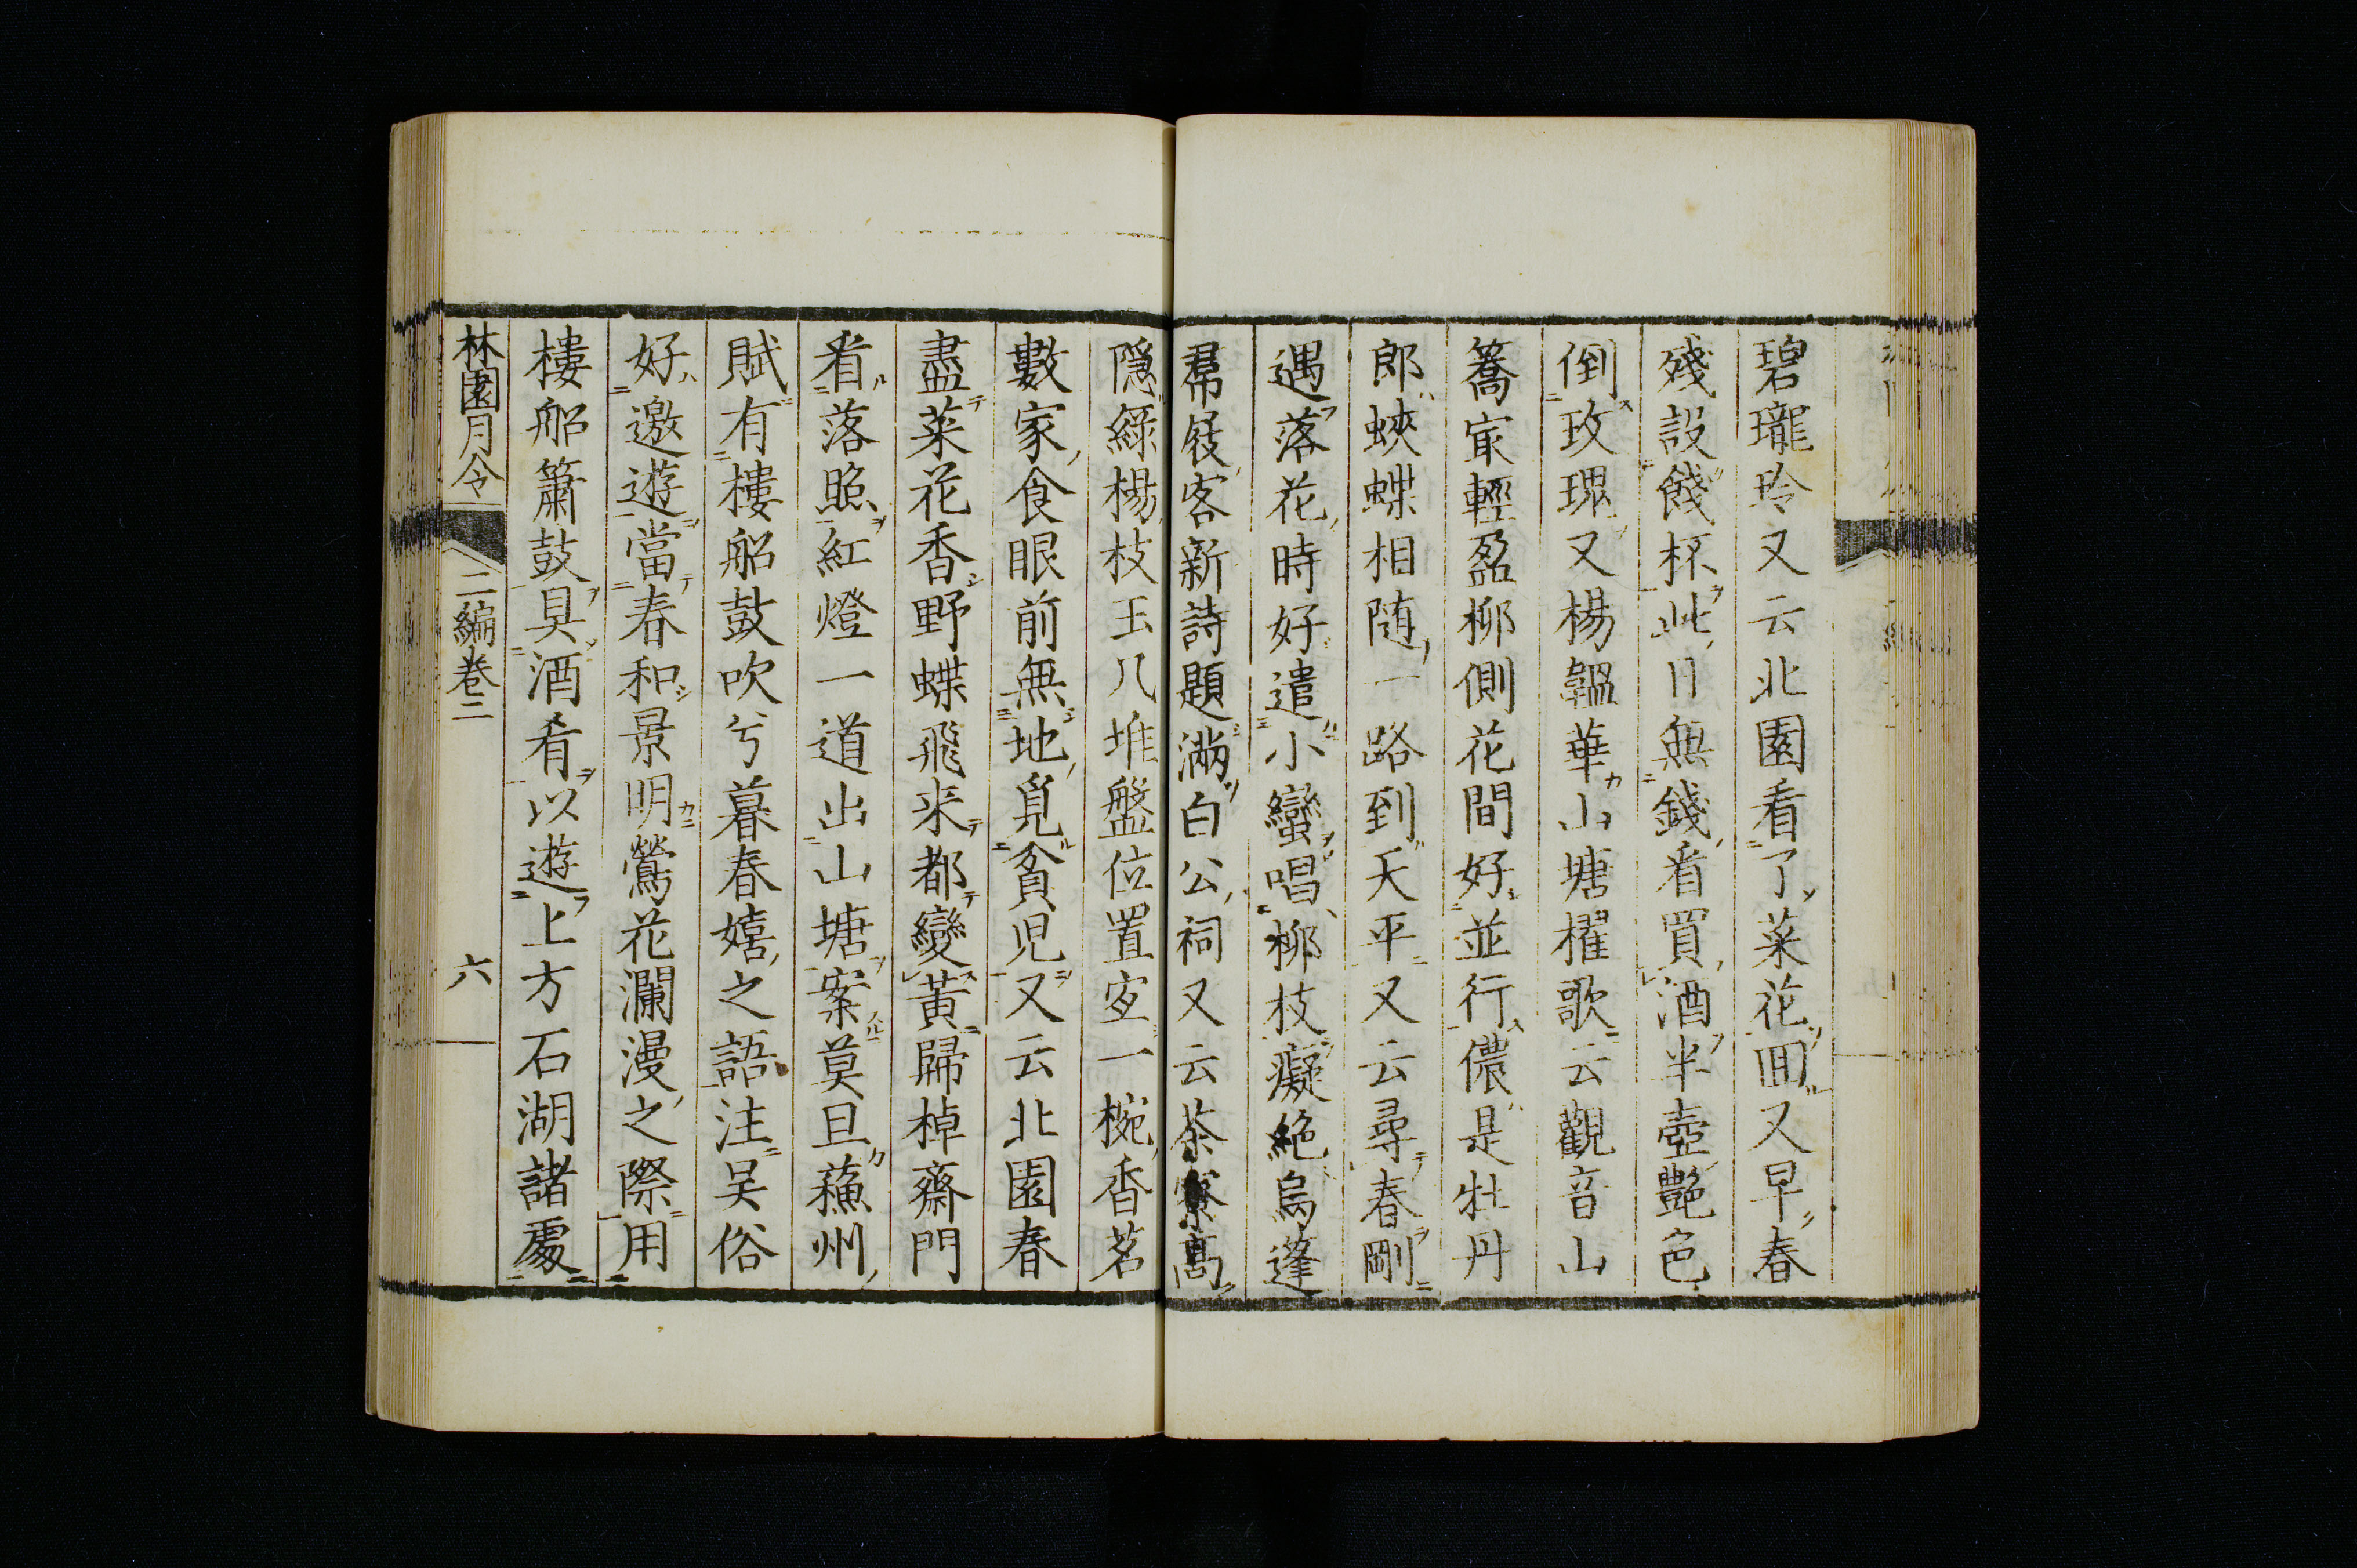 碧瓏玲又云北園看了菜花回又早春
殘設餞杯此日無錢看買酒半壺艷色
倒玫瑰又楊韞華山塘櫂歌云觀音山
簥㝡輕盈柳側花間好並行儂是牡丹
郎蛺蝶相随一路到天平又云尋春剛
遇落花時好遣小蠻唱柳枝癡絶烏篷
羣屐客新詩題滿白公祠又云茶寮髙
隱綠楊枝玉八堆盤位置宐一椀香茗
數家食眼前無地覓貧児又云北園春
盡菜花香野蝶飛来都變黃歸棹齋門
看落照紅燈一道出山塘案莫旦蘓州
賦有樓船鼓吹兮暮春嬉之語注吴俗
好遨遊當春和景明鶯花瀾漫之際用
樓船簫鼓具酒肴以遊上方石湖諸處
林園月令 二編卷二 六